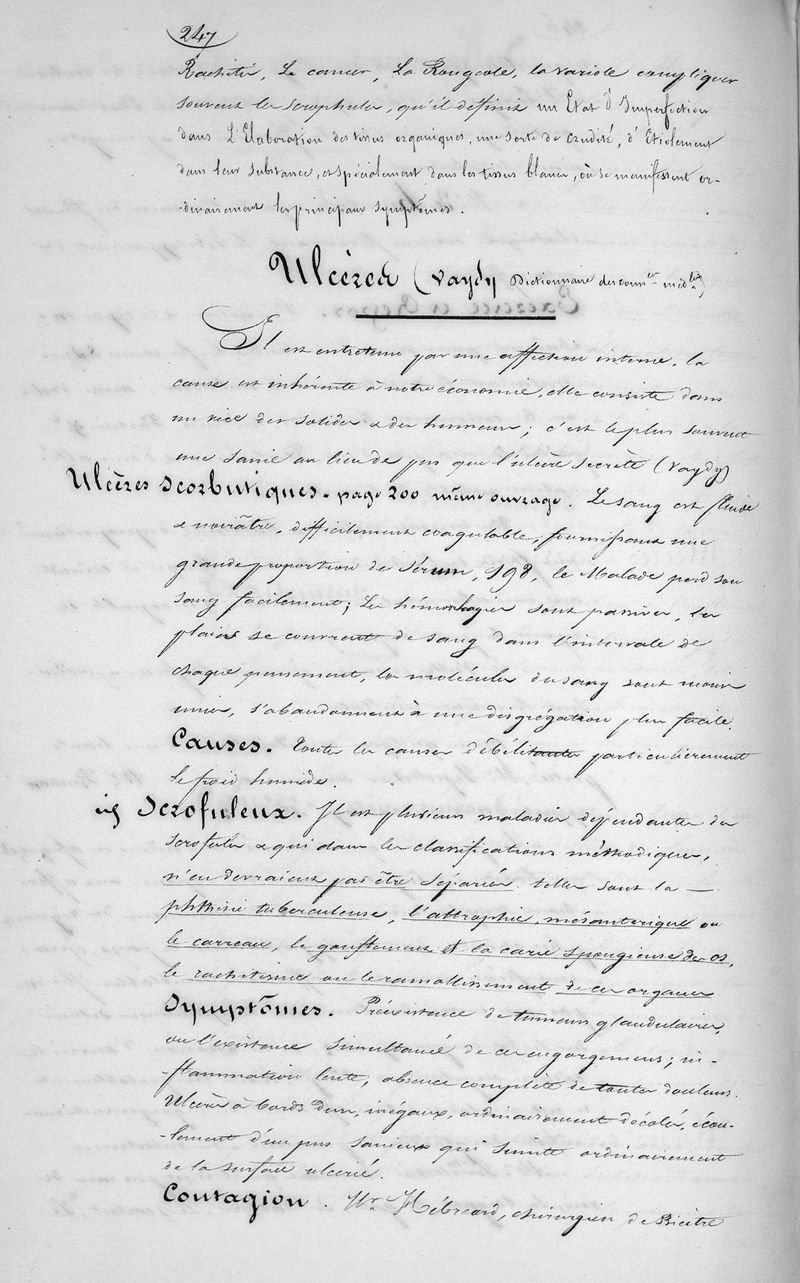 247
Rachitis, Le cancer, La Rougeole, la variole compliquer
souvent les scrophules, qu'il deffinit un Etat d'Imperfection
dans L'Elaboration des tissus organiques, une sorte de crudité, d'Etiolement
dans leur substance, et spécialement dans les tissus blancs, où se manifestent or-
-dinairement les principaux symptômes.
Ulcères (Vaydy Dictionnaire des
Il est entretenu par une affection interne, la
cause est inhérente à notre économie, elle consiste dans
un vice des solides & des humeurs; c'est le plus souvent
une sanie au lieu de pus que l'ulcère secrète (Vaydy)
Ulcères scorbutiques - page 200 même ouvrage. Le sang est fluide
& noirâtre, difficilement coagulable, fournissant une
grande proportion de sérum, 198, le Malade perd son
sang facilement; Les hémorhagies sont passives, les
plaies se couvrent de sang dans l'intervale de
chaque pansement, les molécules du sang sont moins
unies, s'abandonnent à une disgrégation plus facile.
Causes. toutes les causes débilitantes particulièrement
le froid humide.
id Scrofuleux. Il est plusieurs maladies dépendantes du
scrofules & qui dans les classifications méthodiques,
n'en devraient pas être séparées. telles sont la —
phthisie tuberculeuse, l'attrophie, mésenterique ou
le carreau, le gonflement et la carie spongieuse des os,
le rachitisme ou le ramollissement de ces organes
Symptômes. Préexistence de tumeurs glandulaires,
ou l'existence simultanée de ces engorgemens; in-
-flammation lente, absence complète de toutes douleurs.
Ulcère à bords durs, inégaux, ordinairement décolés, écou-
-lement d'un pus sanieux qui suinte ordinairement
de la surface ulcérée.
Contagion. Mr Hébréard, chirurgien de Bicêtre